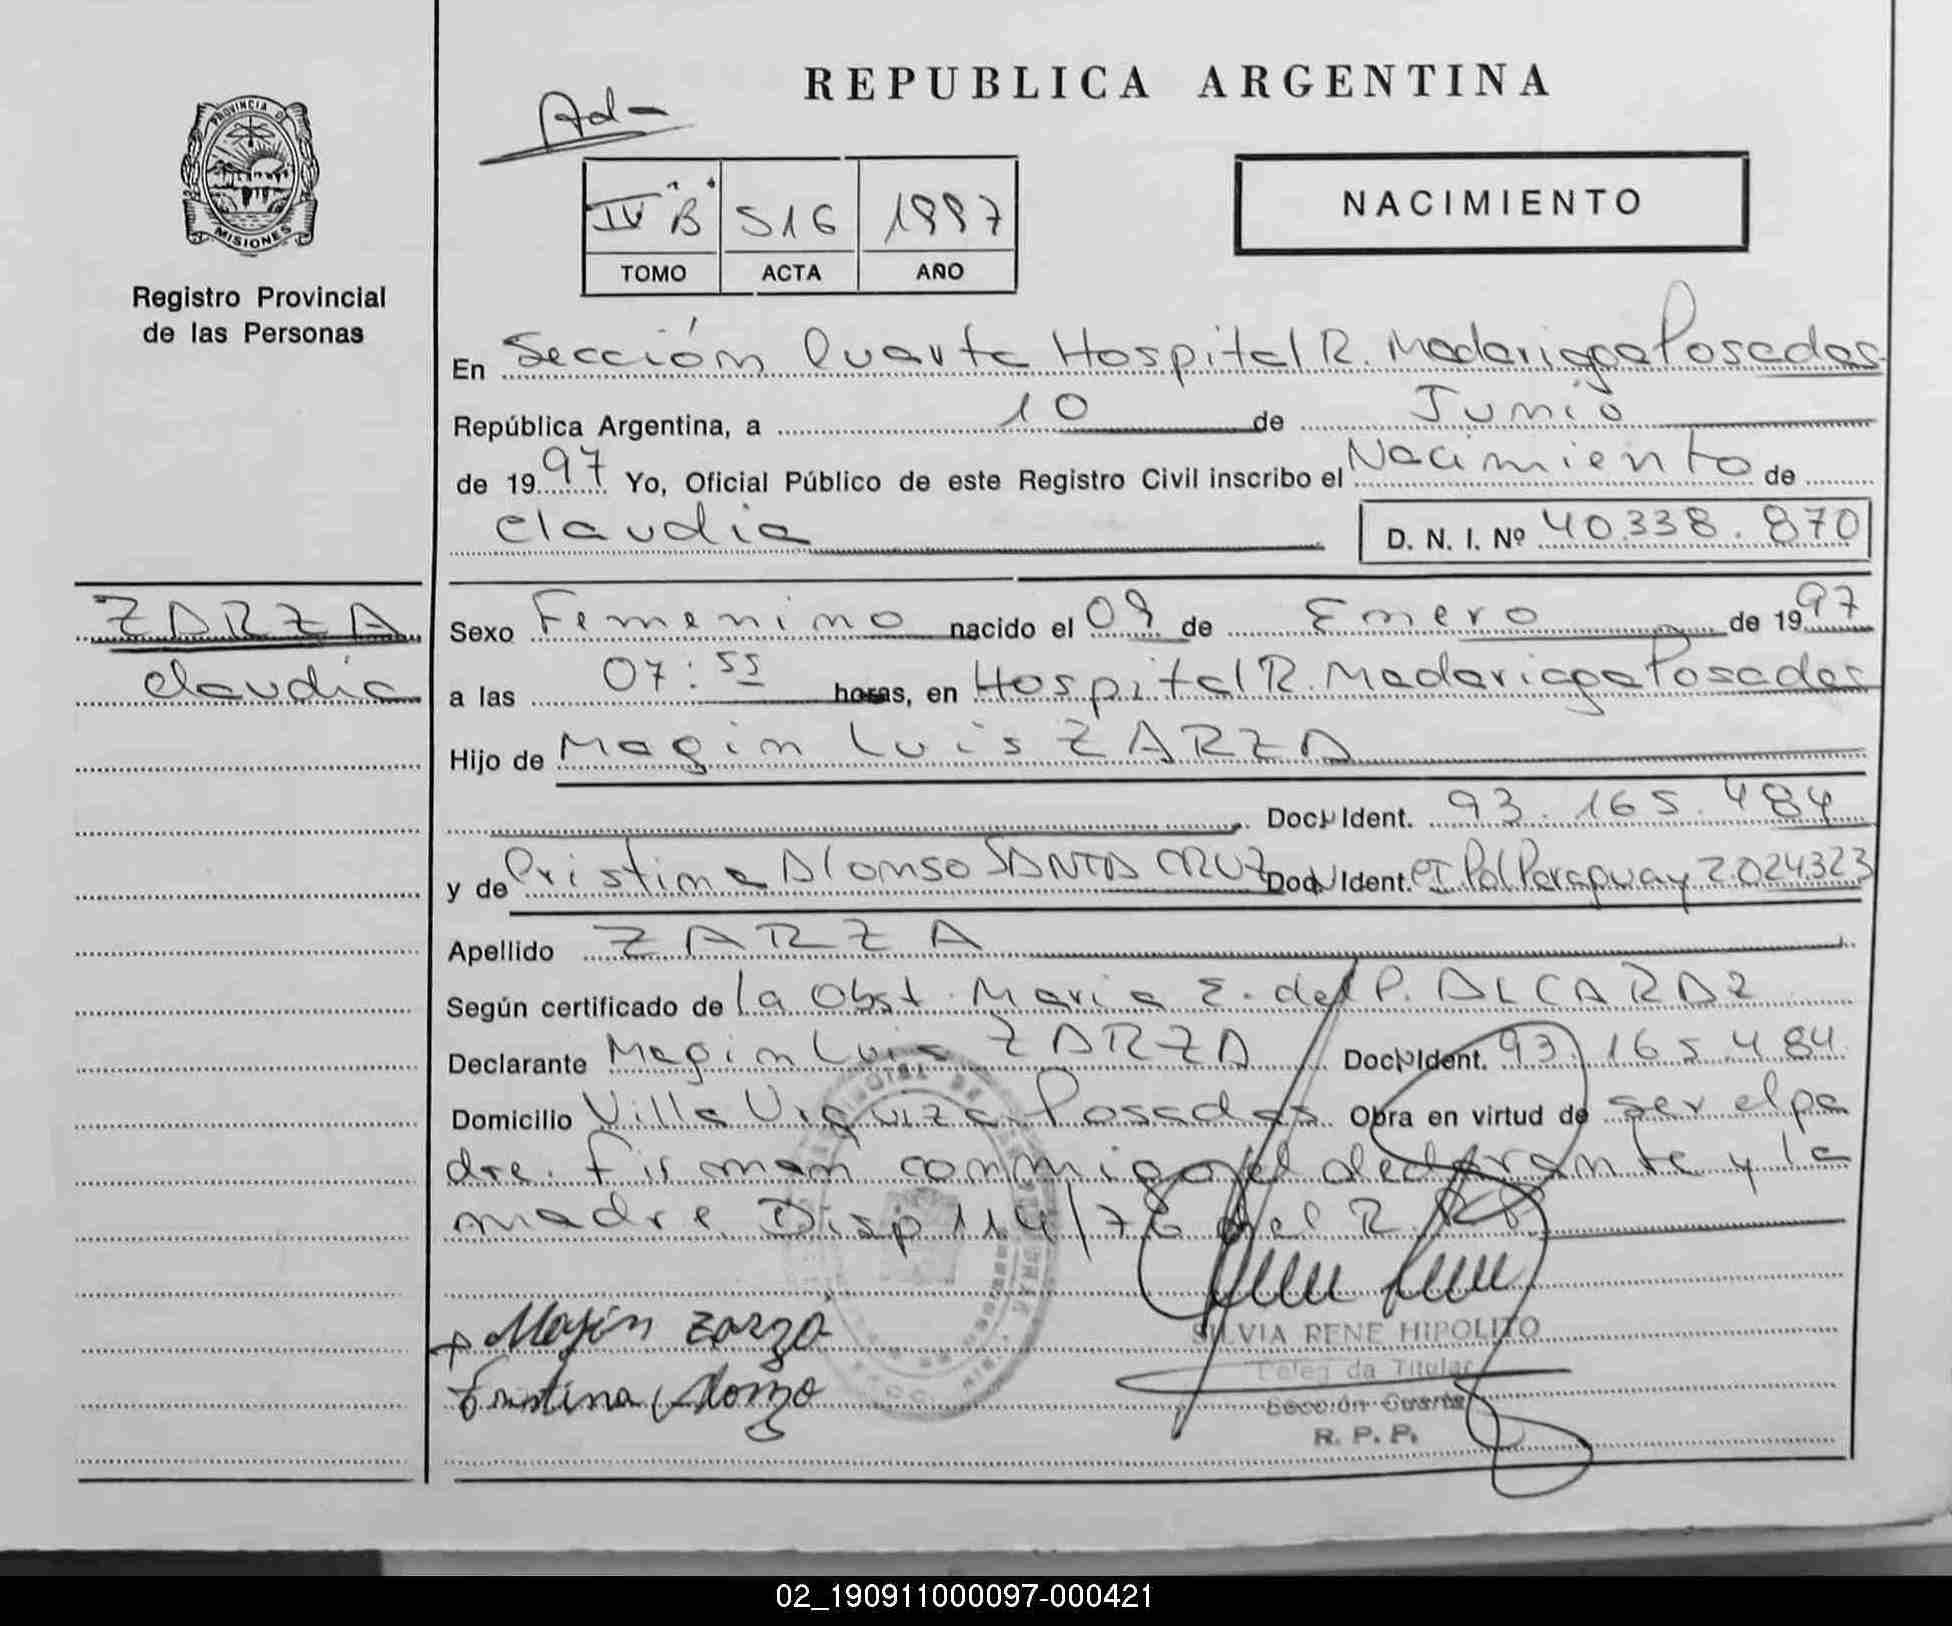 REPUBLICA ARGENTINA
Ada
PROVINCIA DE
MISIONES
Registro Provincial
de las Personas
IV "B" 516 1997
TOMO ACTA AÑO
NACIMIENTO
En Sección Cuarta Hospital R. Madariaga Posadas
República Argentina, a 10 de Junio
de 1997 Yo, Oficial Público de este Registro Civil inscribo el Nacimiento de
Claudia D. N. I. Nº 40.338.870
ZARZA
Claudia
Sexo Femenino nacido el 09 de Enero de 1997
a las 07:55 horas, en Hospital R. Madariaga Posadas
Hijo de Magin Luis ZARZA
Doc. Ident. 93.165.484
y de Cristina Alonso SANTA CRUZ Doc. Ident. CI Pol Paraguay 2.024.323
Apellido ZARZA
Según certificado de la Obst. Maria E. del P. ALCARAZ
Declarante Magin Luis ZARZA Doc. Ident. 93.165.484
Domicilio Villa Urquiza Posadas Obra en virtud de ser el pa
dre. Firman conmigo el declarante y la
madre. Disp 114/76 del R.
Magin Zarza
Cristina Alonzo
SILVIA RENE HIPOLITO
Delegada Titular
Sección Cuarta
R. P. P.
02_190911000097-000421